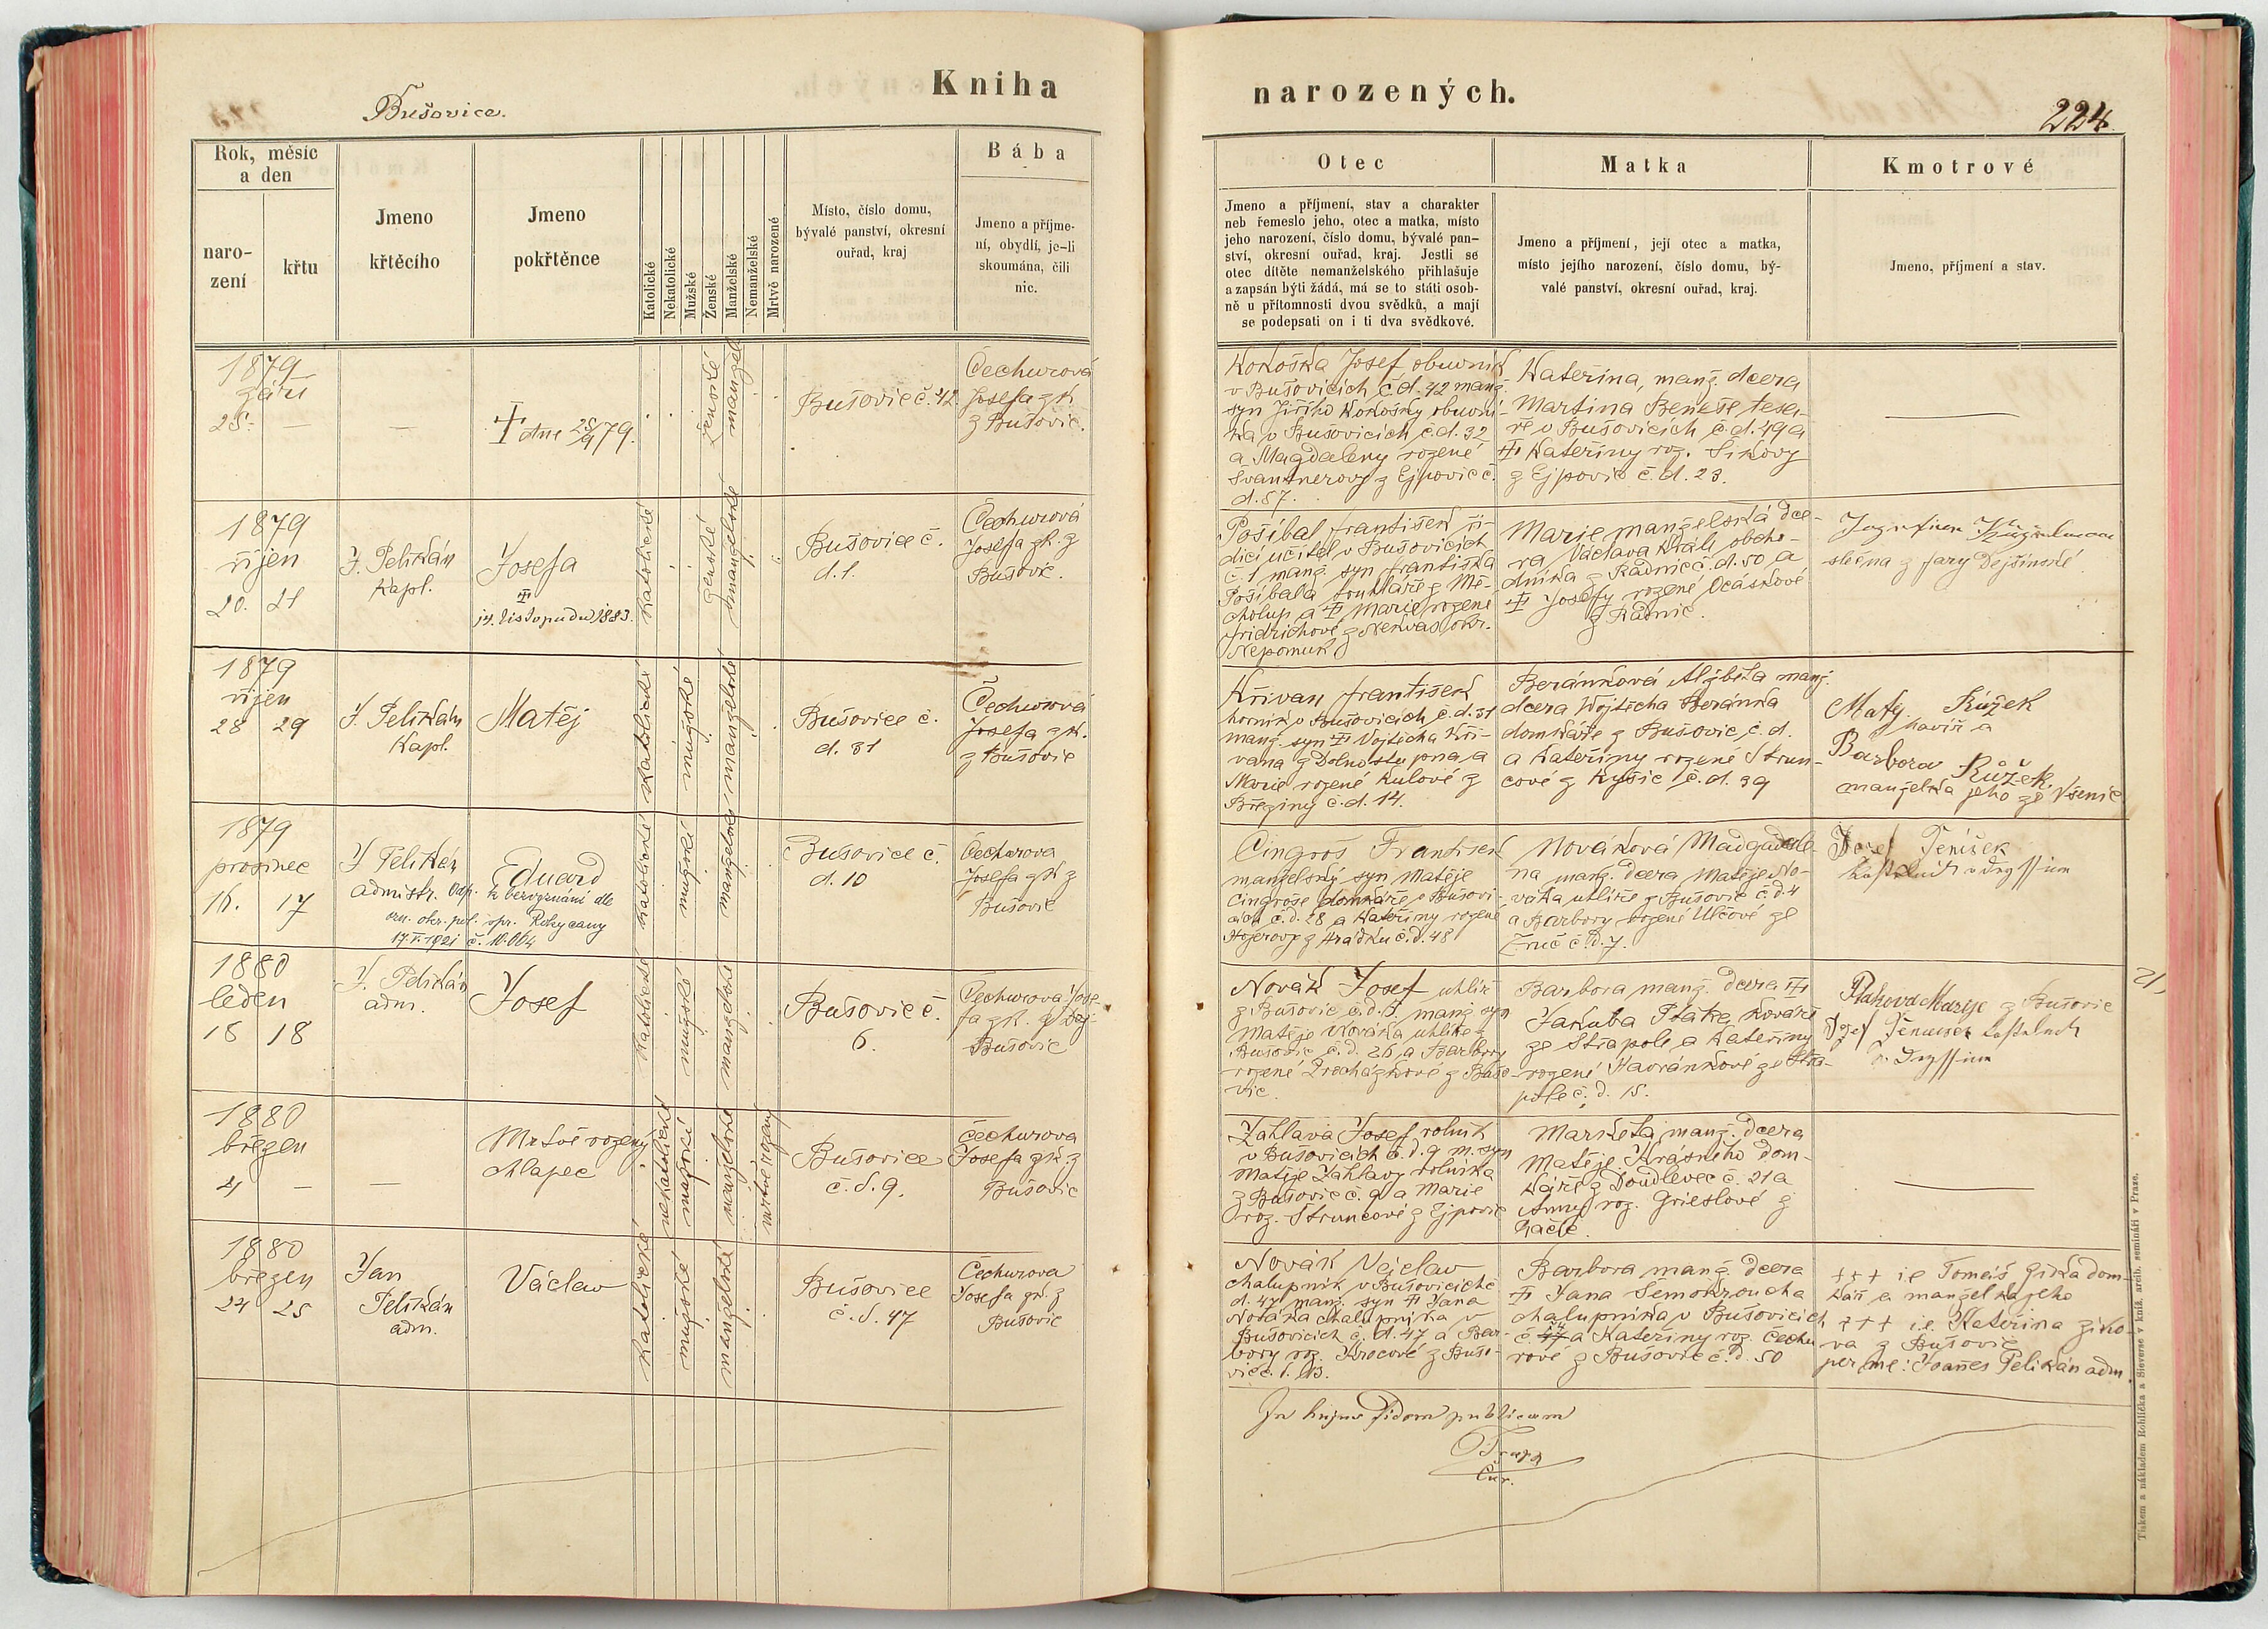 Kniha
narozených.
Bušovice.
224
Rok, měsíc
a den
naro-
zení
křtu
Jmeno
křtěcího
Jmeno
pokřtěnce
Katolické
Nekatolické
Mužské
Ženské
Manželské
Nemanželské
Mrtvě narozené
Místo, číslo domu,
bývalé panství, okresní
ouřad, kraj
Bába
Jmeno a příjme-
ní, obydlí, je-li
skoumána, čili
nic.
Otec
Jmeno a příjmení, stav a charakter
neb řemeslo jeho, otec a matka, místo
jeho narození, číslo domu, bývalé pan-
ství, okresní ouřad, kraj. Jestli se
otec dítěte nemanželského přihlašuje
a zapsán býti žádá, má se to státi osob-
ně u přítomnosti dvou svědků, a mají
se podepsati on i ti dva svědkové.
Matka
Jmeno a příjmení, její otec a matka,
místo jejího narození, číslo domu, bý-
valé panství, okresní ouřad, kraj.
Kmotrové
Jmeno, příjmení a stav.
1879
září
25. — —
† dne 25/9 79.
ženské
manžel
Bušovic č. 42
Čechurová
Josefa zk
z Bušovic.
Kokoška Josef, obuvník
v Bušovicích č.d. 42 manž.
syn Jiřího Kokošky obuvní-
ka v Bušovicích č.d. 32
a Magdaleny rozené
Švantnerovy z Ejpovic č.
d. 57.
Kateřina, manž. dcera
Martina Beneše tesa-
ře v Bušovicích č.d. 49 a
† Kateřiny roz. Šikovy
z Ejpovic č.d. 23.
1879
říjen
20. 21
J. Pelikán
Kapl.
Josefa
†
14. listopadu 1883.
katolické
ženské
manželské
Bušovice č.
d. 1.
Čechurová
Josefa zk. z
Bušovic.
Pošíbal František ří-
dicí učitel v Bušovicích
č. 1 manž. syn Františka
Pošíbala truhláře z Mě-
cholup a † Marie rozené
Fridrichové z Nekvas okr.
Nepomuk
Marie manželská dce-
ra Václava Králi obcho-
dníka z Radnic č.d. 50 a
† Josefy rozené Ocáskové
z Radnic.
slečna z fary Dejšinské
1879
říjen
28 29
J. Pelikán
Kapl.
Matěj
katolické
mužské
manželské
Bušovice č.
d. 31
Čechurová
Josefa zk.
z Bušovic
Křivan František
horník v Bušovicích č.d. 31
manž. syn † Vojtěcha Kři-
vana z Dolnostupna a
Marie rozené Kulové z
Březiny č.d. 14.
Beránková Alžběta manž.
dcera Vojtěcha Beránka
domkáře z Bušovic č.d.
a Kateřiny rozené Strun-
cové z Kyšic č.d. 39
Matěj Růžek
havíř a
Barbora Růžek
manželka jeho ze Všenic
1879
prosinec
16. 17
J Pelikán
admistr.
Eduard
Odp. k bezvyznání dle
ozn. okr. pol. spr. Rokycany
17.V.1921 č. 10.004
katolické
mužské
manželský
Bušovice č.
d. 10
Čechurova
Josefa zk z
Bušovic
Cingroš František
manželský syn Matěje
Cingroše domkáře v Bušovi-
cích č.d. 28 a Kateřiny rozené
Hojerovy z Hrádku č.d. 48
Nováková Madgadale-
na manž. dcera Matěje No-
váka uhlíře z Bušovic č.d. 4
a Barbory rozené Ulčové ze
Žruč č.d. 7.
Josef Jeníšek
1880
leden
16 18
J. Pelikán
adm.
Josef
katolické
mužské
manželské
Bušovic č.
6.
Čechurova Jose-
fa zk. z Dej-
Bušovic
Novák Josef uhlíř
z Bušovic č.d. 6. manž syn
Matěje Nováka uhlíře z
Bušovic č.d. 26 a Barbory
rozené Procházkové z Bušo-
vic.
Barbora manž. dcera †
Jakuba Ptáka, kováře
ze Střapole a Kateřiny
rozené Havránkové ze Stra-
pole č.d. 15.
Ptakova Marije z Bušovic
1880
březen
4 — —
Mrtvě rozený
chlapec
nekatolické
mužské
manželské
mrtvě rozený
Bušovice
č.d. 9.
Čechurova
Josefa zk. z
Bušovic
Záhlava Josef rolník
v Bušovicích č.d. 9 m. syn
Matěje Záhlavy rolníka
z Bušovic č. 9 a Marie
roz. Štruncové z Ejpovic
Markéta manž. dcera
Matěje Krásného dom-
káře z Doudlevec č. 21 a
Anny roz. Grieslové z
1880
březen
24 25
Jan
Pelikán
adm.
Václav
katolické
mužské
manželské
Bušovice
č.d. 47
Čechurova
Josefa zk. z
Bušovic
Novák Václav
chalupník v Bušovicích č.
d. 47 manž. syn † Jana
Nováka chalupníka v
Bušovicích č.d. 47 a Bar-
bory roz. Krocové z Bušo-
vic č.
Barbora manž. dcera
† Jana Semohroucha
chalupníka v Bušovicích
č a Kateřiny roz. Čechu
rové z Bušovic č.d. 50
+++ ie Tomáš Zíka dom-
kář a manželka jeho
+++ ie Kateřina Zíko-
va z Bušovic
per me: Joannes Pelikán adm.
In hujus fidem publicam
Cur.
Tiskem a nákladem Rohlíčka a Sieverse v kníž. arcib. semináři v Praze.